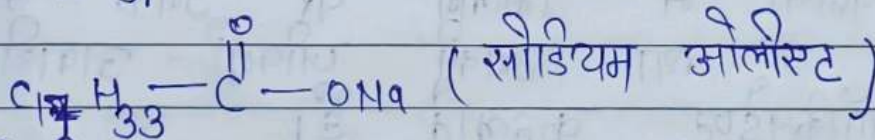 C₁₇H₃₃ — C(=O) — ONa (सोडियम ओलीस्ट)